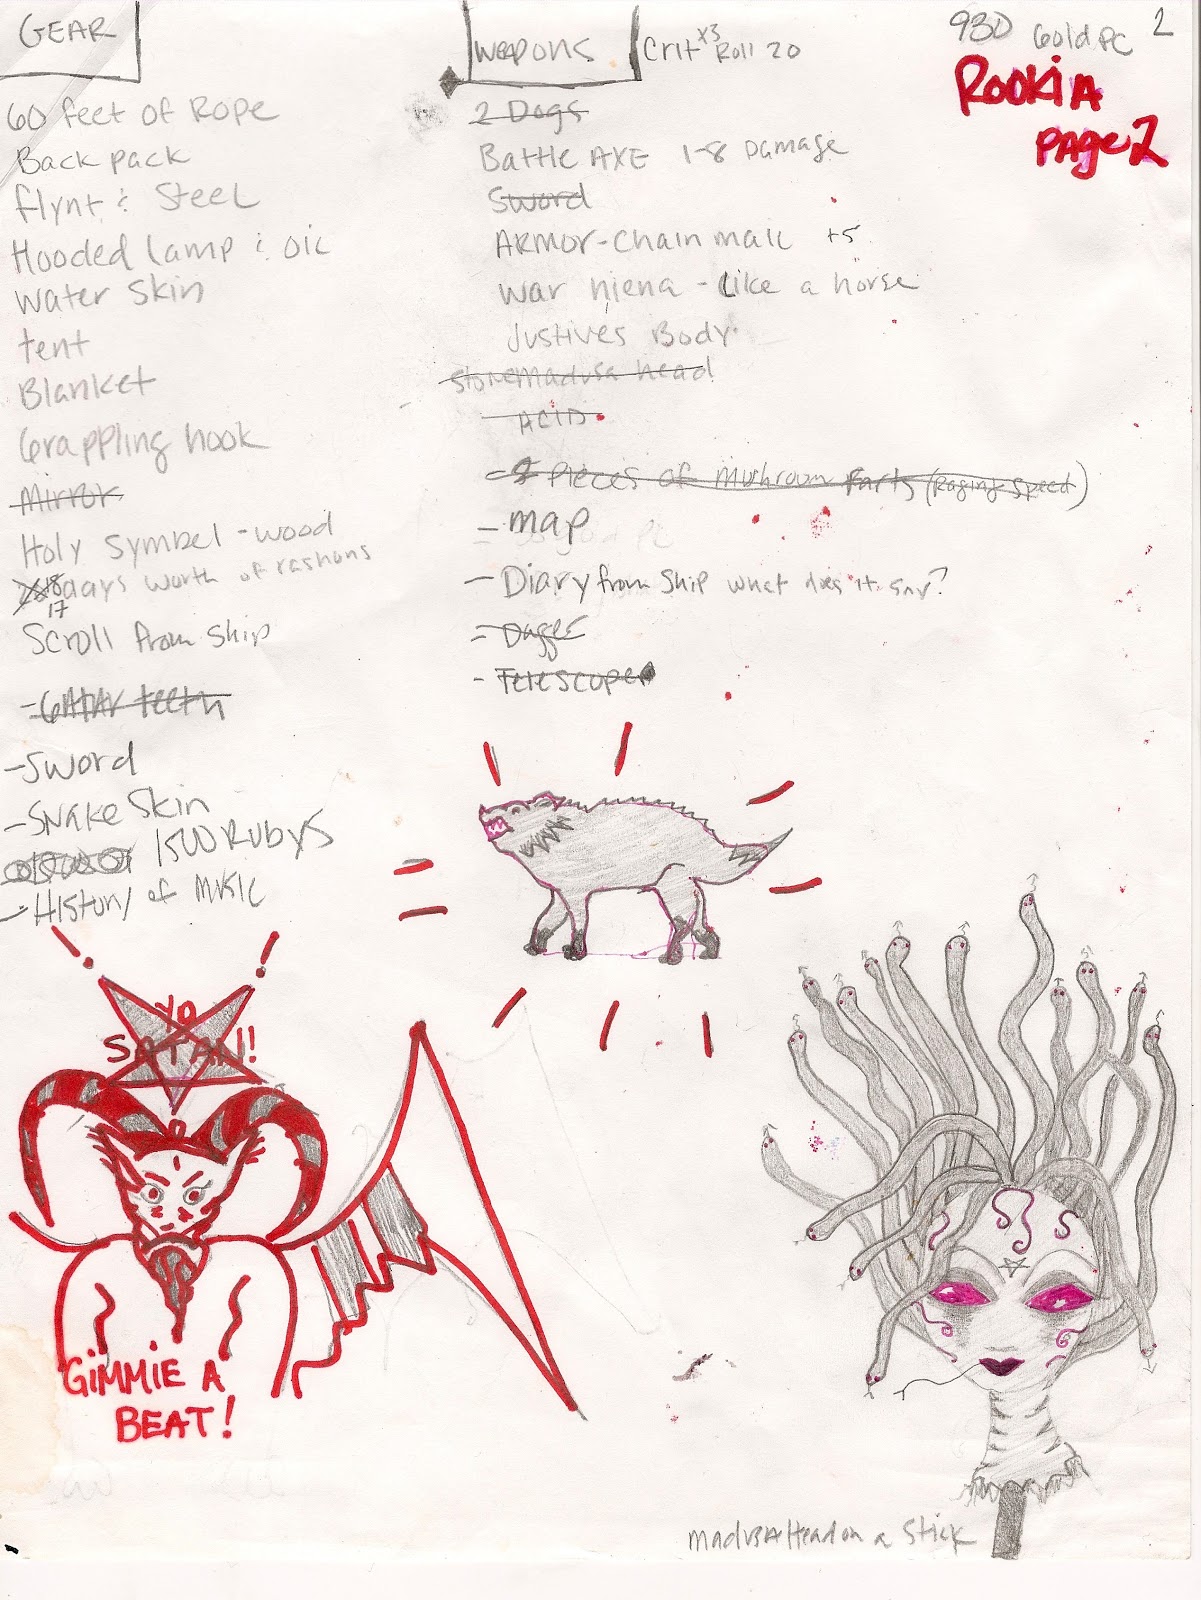 GEAR
60 feet of Rope
Back pack
flynt & Steel
Hooded Lamp & oil
Water Skin
tent
Blanket
Grappling hook
Mirror
Holy Symbel - wood
18 days worth of rashons
17
Scroll from Ship
- GATAR teeth
- Sword
- Snake Skin
1500 RubyS
- History of Music
WEAPONS
Crit x3 Roll 20
2 Dogs
Battle AXE 1-8 Damage
Sword
ARMOR - Chain mail +5
War hiena - Like a horse
Justives Body
Stone Madusa head
- ACID
- 2 Pieces of Mushroom Farts (Raging Speed)
- map
- Diary from Ship what does it say?
- Dagger
- Telescope
930 Gold PC 2
ROOKiA
PAge 2
YO
SATAN!
GiMMiE A
BEAT!
MADUSA Head on a Stick